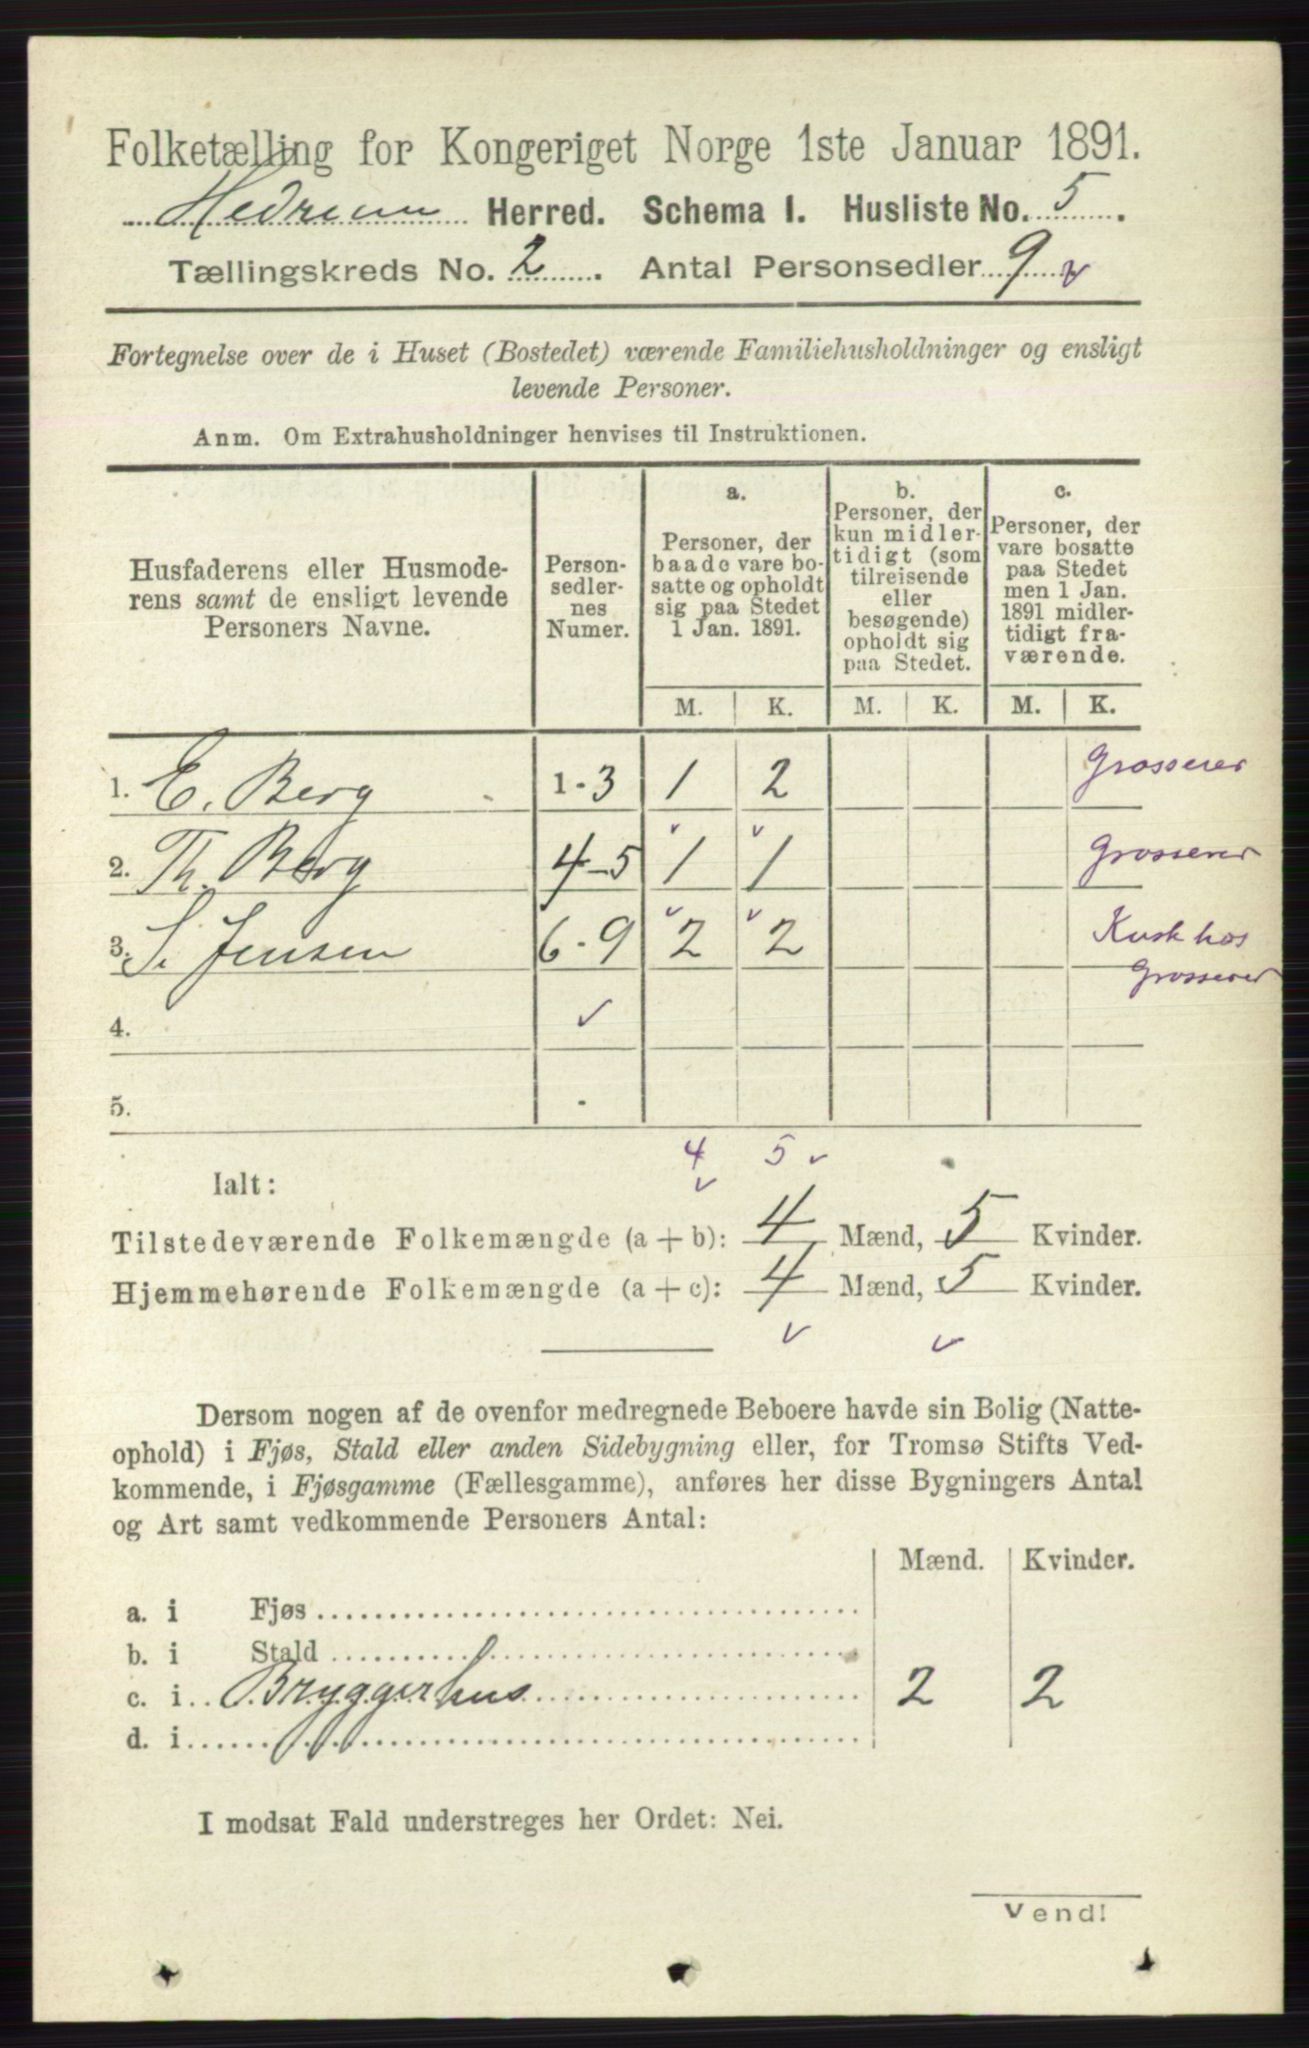 Folketælling for Kongeriget Norge 1ste Januar 1891.
Hedrum Herred. Schema I. Husliste No. 5.
Tællingskreds No. 2. Antal Personsedler 9 v
Fortegnelse over de i Huset (Bostedet) værende Familiehusholdninger og ensligt
levende Personer.
Anm. Om Extrahusholdninger henvises til Instruktionen.
Husfaderens eller Husmode-
rens samt de ensligt levende
Personers Navne.
Person-
sedler-
nes
Numer.
a.
Personer, der
baade vare bo-
satte og opholdt
sig paa Stedet
1 Jan. 1891.
b.
Personer, der
kun midler-
tidigt (som
tilreisende
eller
besøgende)
opholdt sig
paa Stedet.
c.
Personer, der
vare bosatte
paa Stedet
men 1 Jan.
1891 midler-
tidigt fra-
værende.
M. K. M. K. M. K.
1. E. Berg 1-3 1 2 Grosserer
2. Th. Berg 4-5 1 1 Grosserer
3. S. Jensen 6-9 2 2 Kusk hos
Grosserer
4.
5.
4 5 v
Ialt:
Tilstedeværende Folkemængde (a + b): 4 Mænd, 5 Kvinder.
Hjemmehørende Folkemængde (a + c): 4 Mænd, 5 Kvinder.
Dersom nogen af de ovenfor medregnede Beboere havde sin Bolig (Natte-
ophold) i Fjøs, Stald eller anden Sidebygning eller, for Tromsø Stifts Ved-
kommende, i Fjøsgamme (Fællesgamme), anføres her disse Bygningers Antal
og Art samt vedkommende Personers Antal:
Mænd. Kvinder.
a. i Fjøs
b. i Stald
c. i Bryggerhus 2 2
d. i
I modsat Fald understreges her Ordet: Nei.
Vend!